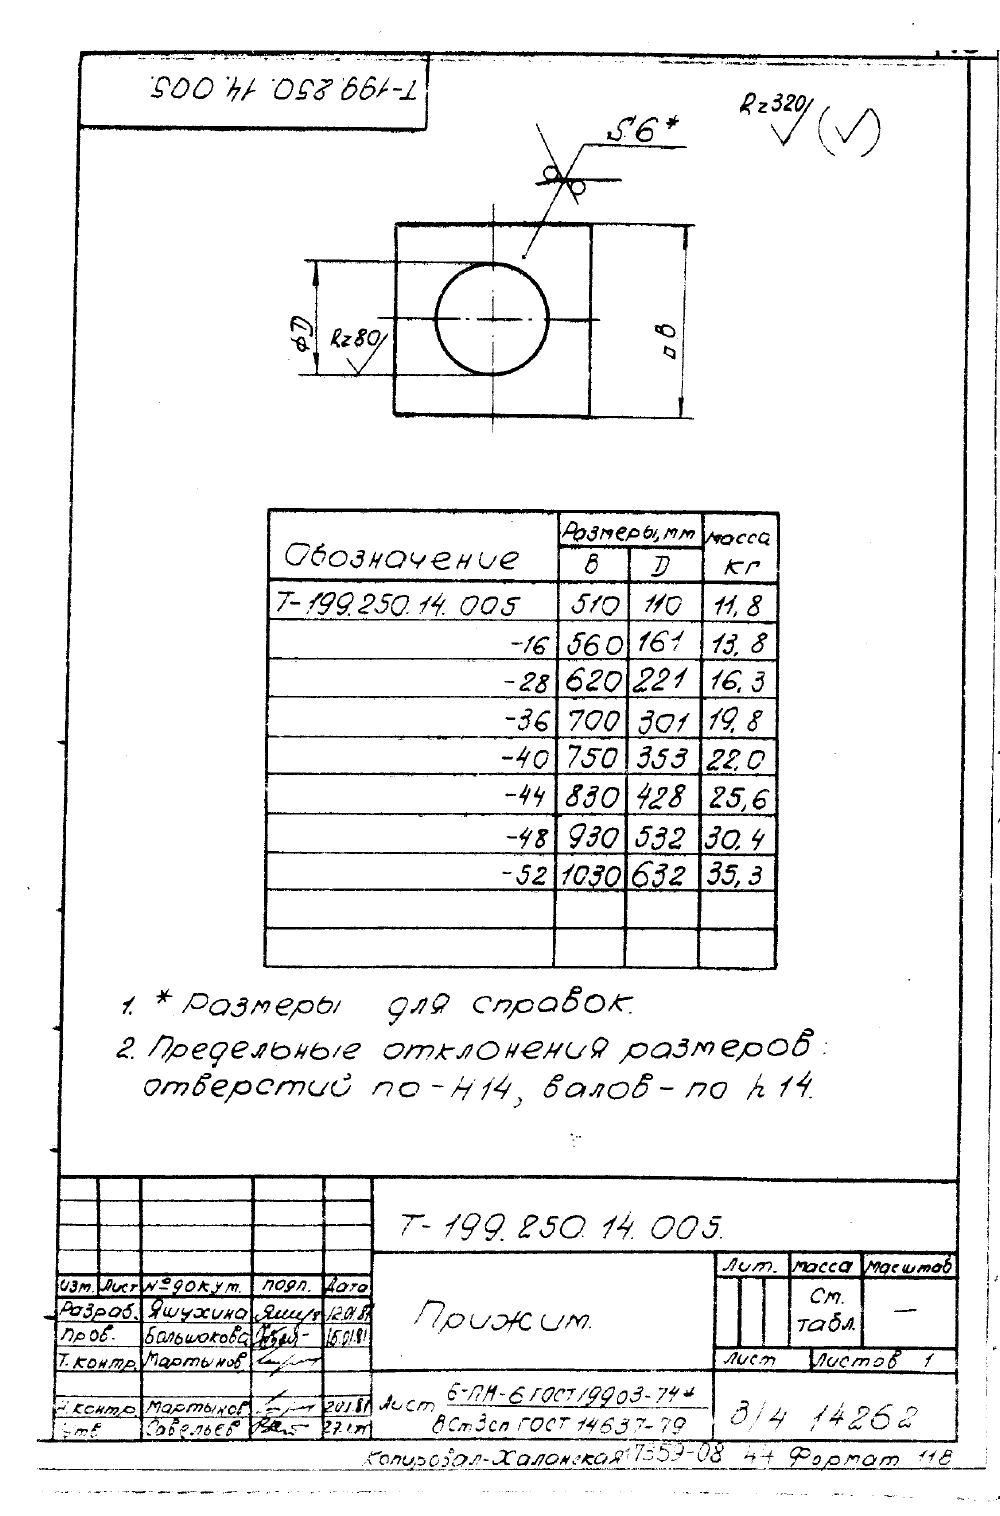 Т-199.250.14.005.
Rz320
S6*
⌀D
Rz80
□В
Обозначение
Размеры, мм
масса
кг
В D
Т-199.250.14.005 510 110 11,8
-16 560 161 13,8
-28 620 221 16,3
-36 700 301 19,8
-40 750 353 22,0
-44 830 428 25,6
-48 930 532 30,4
-52 1030 632 35,3
1. * Размеры для справок.
2. Предельные отклонения размеров:
отверстий по - H14, валов - по h14.
Т-199.250.14.005.
Изм. Лист № докум. подп. Дата
Разраб. Яшухина 12.01.81
Пров. Большакова 15.01.81
Т. контр. Мартынов
Н. контр. Мартынов 20.1.81
Утв Савельев
Прижим.
Лит. масса масштаб
См.
табл.
—
Лист Листов 1
Лист Б-ПН-6 ГОСТ 19903-74*
ВСт3сп ГОСТ 14637-79
З/4 14262
Копировал-Халонская 17359-08 44 Формат 11В